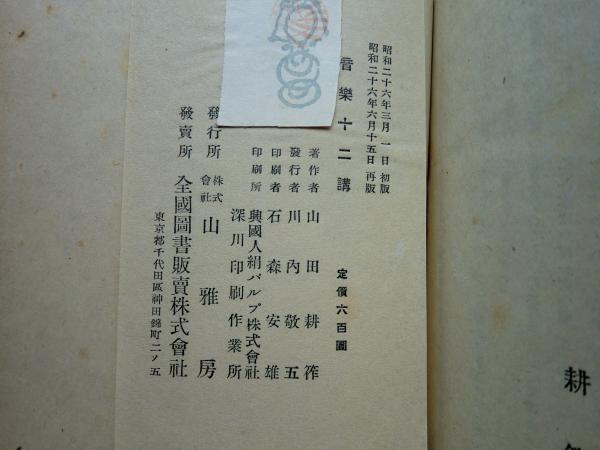 昭和二十六年三月一日 初版
昭和二十六年六月十五日 再版
音樂十二講
定價六百圓
著作者 山田耕筰
發行者 川內敬五
印刷者 石森安雄
印刷所 興國人絹パルプ株式會社
深川印刷作業所
發行所 株式會社 山雅房
發賣所 全國圖書販賣株式會社
東京都千代田區神田錦町二ノ五
耕